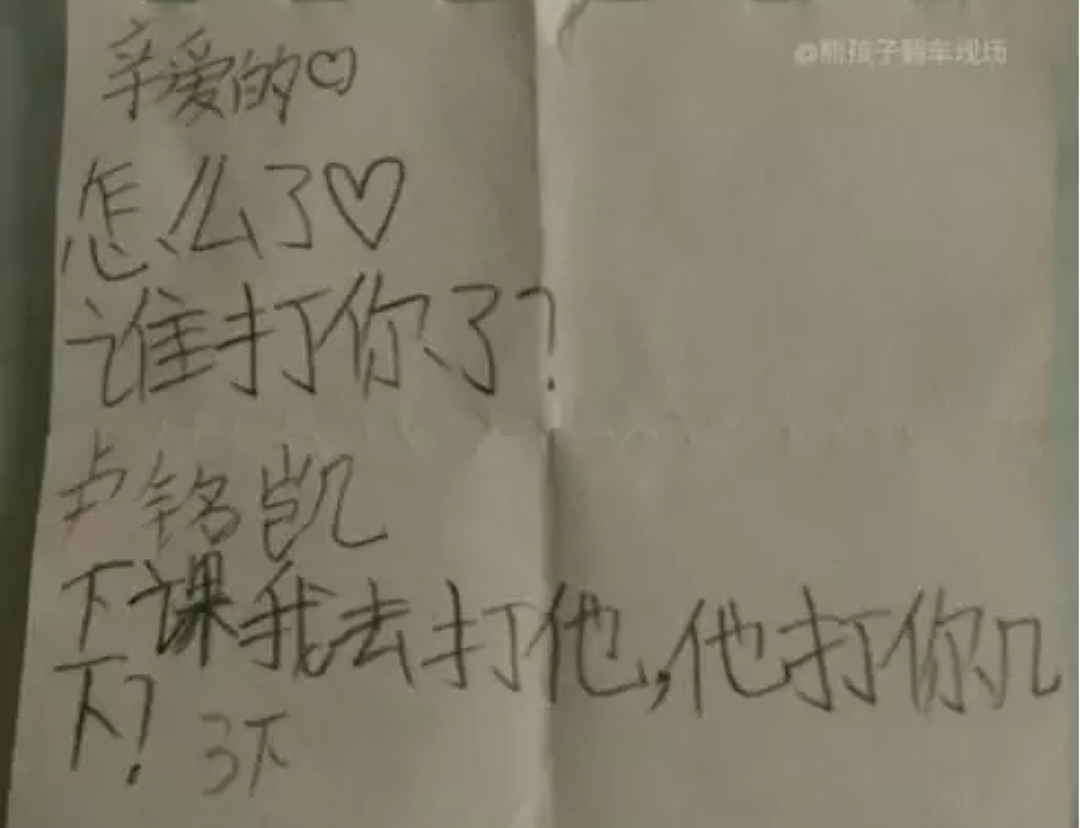 @熊孩子翻车现场
亲爱的♡
怎么了♡
谁打你了?
卢铭凯
下课我去打他,他打你几
下?
3下